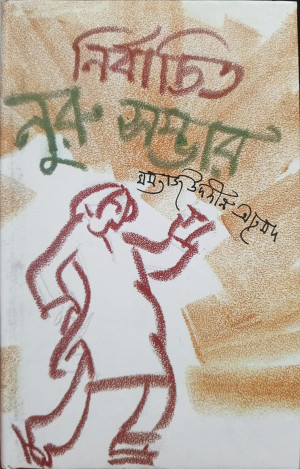 নির্বাচিত
নুরু সম্ভার
মমতাজউদদীন আহমদ